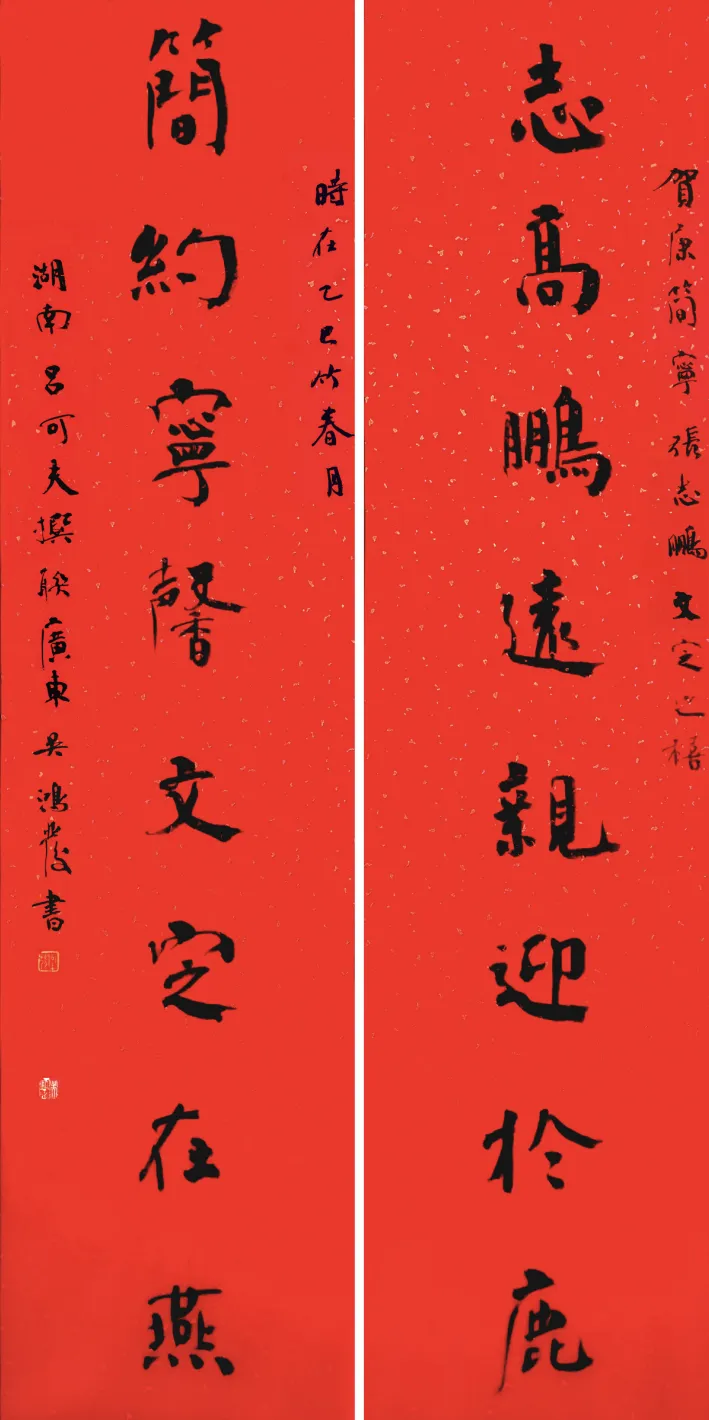 賀康簡寧張志鵬文定之禧
志高鵬遠親迎於鹿
時在乙巳竹春月
簡約寧馨文定在燕
湖南呂可夫撰聯廣東吳鴻發書